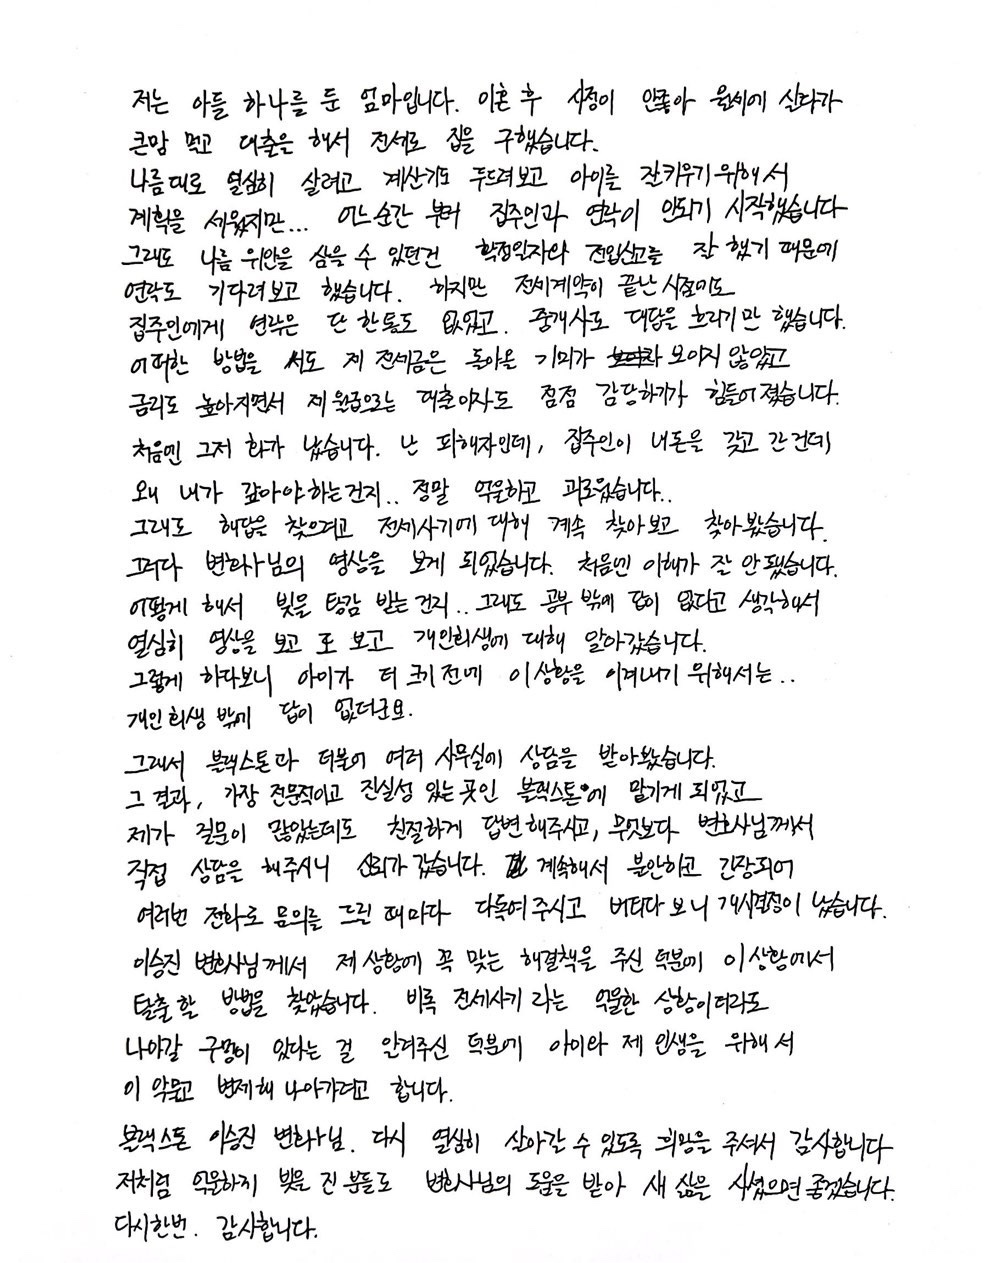 저는 아들 하나를 둔 엄마입니다. 이혼 후 사정이 안좋아 월세에 살다가
큰맘 먹고 대출을 해서 전세로 집을 구했습니다.
나름대로 열심히 살려고 계산기도 두드려보고 아이를 잘키우기위해서
계획을 세웠지만... 어느순간 부터 집주인과 연락이 안되기 시작했습니다
그래도 나름 위안을 삼을 수 있던건 확정일자와 전입신고를 잘 했기 때문에
연락도 기다려보고 했습니다. 하지만 전세계약이 끝난 시점에도
집주인에게 연락은 단 한통도 없었고. 중개사도 대답을 흐리기만 했습니다.
어떠한 방법을 써도 제 전세금은 돌아올 기미가 보이지 않았고
금리도 높아지면서 제 월급으로는 대출이자도 점점 감당하기가 힘들어졌습니다.
처음엔 그저 화가 났습니다. 난 피해자인데, 집주인이 내돈을 갖고 간건데
왜 내가 갚아야하는건지.. 정말 억울하고 괴로웠습니다..
그래도 해답을 찾으려고 전세사기에 대해 계속 찾아보고 찾아봤습니다.
그러다 변호사님의 영상을 보게 되었습니다. 처음엔 이해가 잘 안됐습니다.
어떻게 해서 빚을 탕감 받는건지.. 그래도 공부 밖에 답이 없다고 생각해서
열심히 영상을 보고 또 보고 개인회생에 대해 알아갔습니다.
그렇게 하다보니 아이가 더 크기전에 이상황을 이겨내기 위해서는..
개인회생 밖에 답이 없더군요.
그래서 블랙스톤과 더불어 여러 사무실에 상담을 받아봤습니다.
그 결과, 가장 전문적이고 진실성 있는곳인 블랙스톤에 맡기게 되었고
제가 질문이 많았는데도 친절하게 답변해주시고, 무엇보다 변호사님께서
직접 상담을 해주시니 신뢰가 갔습니다. 계속해서 불안하고 긴장되어
여러번 전화로 문의를 드린 때마다 다독여주시고 버티다보니 개시결정이 났습니다.
이승진 변호사님께서 제상황에 꼭 맞는 해결책을 주신 덕분에 이상황에서
탈출할 방법을 찾았습니다. 비록 전세사기라는 억울한 상황이더라도
나아갈 구멍이 있다는 걸 알려주신 덕분에 아이와 제 인생을 위해서
이 악물고 변제해나아가려고 합니다.
블랙스톤 이승진 변호사님. 다시 열심히 살아갈수있도록 희망을 주셔서 감사합니다
저처럼 억울하게 빚을 진분들도 변호사님의 도움을 받아 새 삶을 사셨으면 좋겠습니다.
다시한번. 감사합니다.